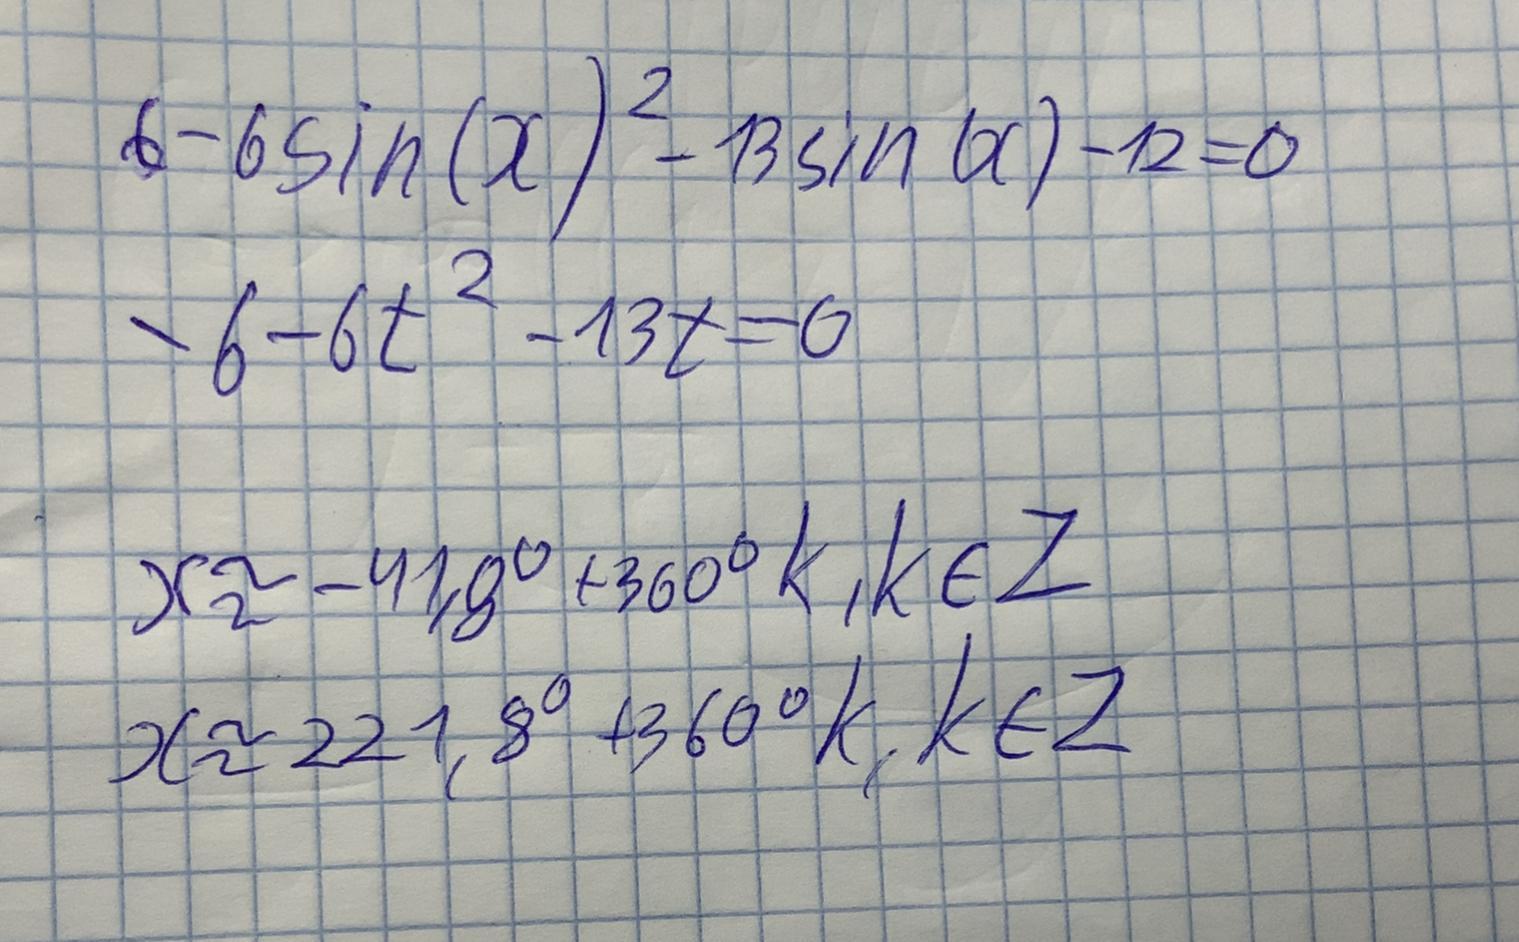 6-6sin(x)²-13sin(x)-12=0
-6-6t²-13t=0
x≈-41,8°+360°k,k∈Z
x≈221,8°+360°k,k∈Z